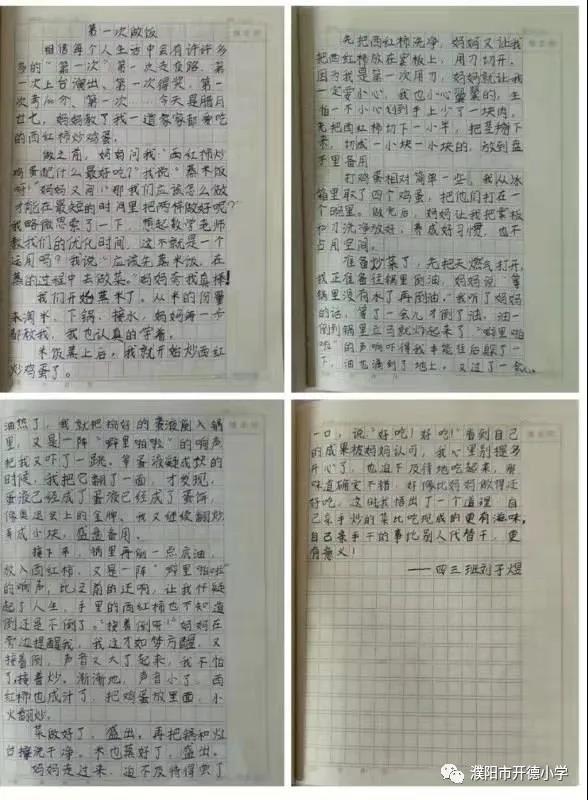 第一次做饭
相信每个人生活中会有许许多
多的“第一次”第一次走夜路、第
一次上台演出、第一次得奖、第一
次考满分、第一次……今天是腊月
廿七，妈妈教了我一道家家都爱吃
的西红柿炒鸡蛋。
做之前，妈妈问我：“西红柿炒
鸡蛋配什么最好吃？”我说：“蒸米饭
呀！”妈妈又问：“那我们应该怎么做
才能在最短的时间里把两样做好呢？”
我略微思索了一下，想起数学老师
教我们的优化时间，这不就是一个
运用吗？我说：“应该先蒸米饭，在
蒸的过程中去做菜。”妈妈夸我真棒！
我们开始蒸米了。从米的
米淘米、下锅、接水，妈妈每一步
都教我，我也认真的学着。
米饭蒸上后，我就开始炒西红
炒鸡蛋了。
先把西红柿洗净，妈妈又让我
把西红柿放在案板上，用刀切开，
因为我是第一次用刀，妈妈就让我
一定要小心，我也小心翼翼的，生
怕一不小心划到手上少了一块肉。
先把西红柿切下一小半，把茎撸下
来，切成一小块一小块的，放到盘
子里备用
打鸡蛋相对简单一些。我从冰
箱里取了四个鸡蛋，把他们打在一
个碗里。做完后，妈妈让我把案板
和刀洗净放好，养成好习惯，也不
占用空间。
准备炒菜了，先把天燃气打开，
我正准备往锅里倒油，妈妈说：“等
锅里没有水了再倒油。”我听了妈妈
的话，等了一会儿才倒了油，油一
倒到锅里立马就炸起来了，“噼里啪
啦”的声响吓得我本能往后躲了一
下，油也滴到了地上，又过了一会儿，
油热了，我就把搅好的蛋液倒入锅
里，又是一阵“噼里啪啦”的响声
把我又吓了一跳。等蛋液凝成饮的
时候，我把它翻了一面，才发现，
蛋液已经成了蛋液已经成了蛋饼，
像奥运会上的金牌。我又继续翻炒
弄成小块，盛盘备用。
接下来，锅里再倒一点底油，
放入西红柿，又是一阵“噼里啪啦”
的响声，比之前的还响，让我怀疑
起了人生，手里的西红柿也不知道
倒还是不倒了。“接着倒呀！”妈妈在
旁边提醒我，我这才如梦方醒，又
接着倒，声音又大了起来，我不怕
了接着炒。渐渐地，声音小了，西
红柿也成汁了，把鸡蛋放里面，小
火翻炒。
菜做好了，盛出。再把锅和灶
台擦洗干净。米也蒸好了，盛出。
妈妈走过来，迫不及待得尝了
一口，说：“好吃！好吃！”看到自己
的成果被妈妈认可，我心里别提多
开心了，也迫不及待地吃起来，
味道确实不错，好像比妈妈做得还
好吃，这时我悟出了一个道理：自
己亲手炒的菜比吃现成的更有滋味。
自己亲手干的事比别人代替干，更
有意义！
——四三班刘子煜
濮阳市开德小学